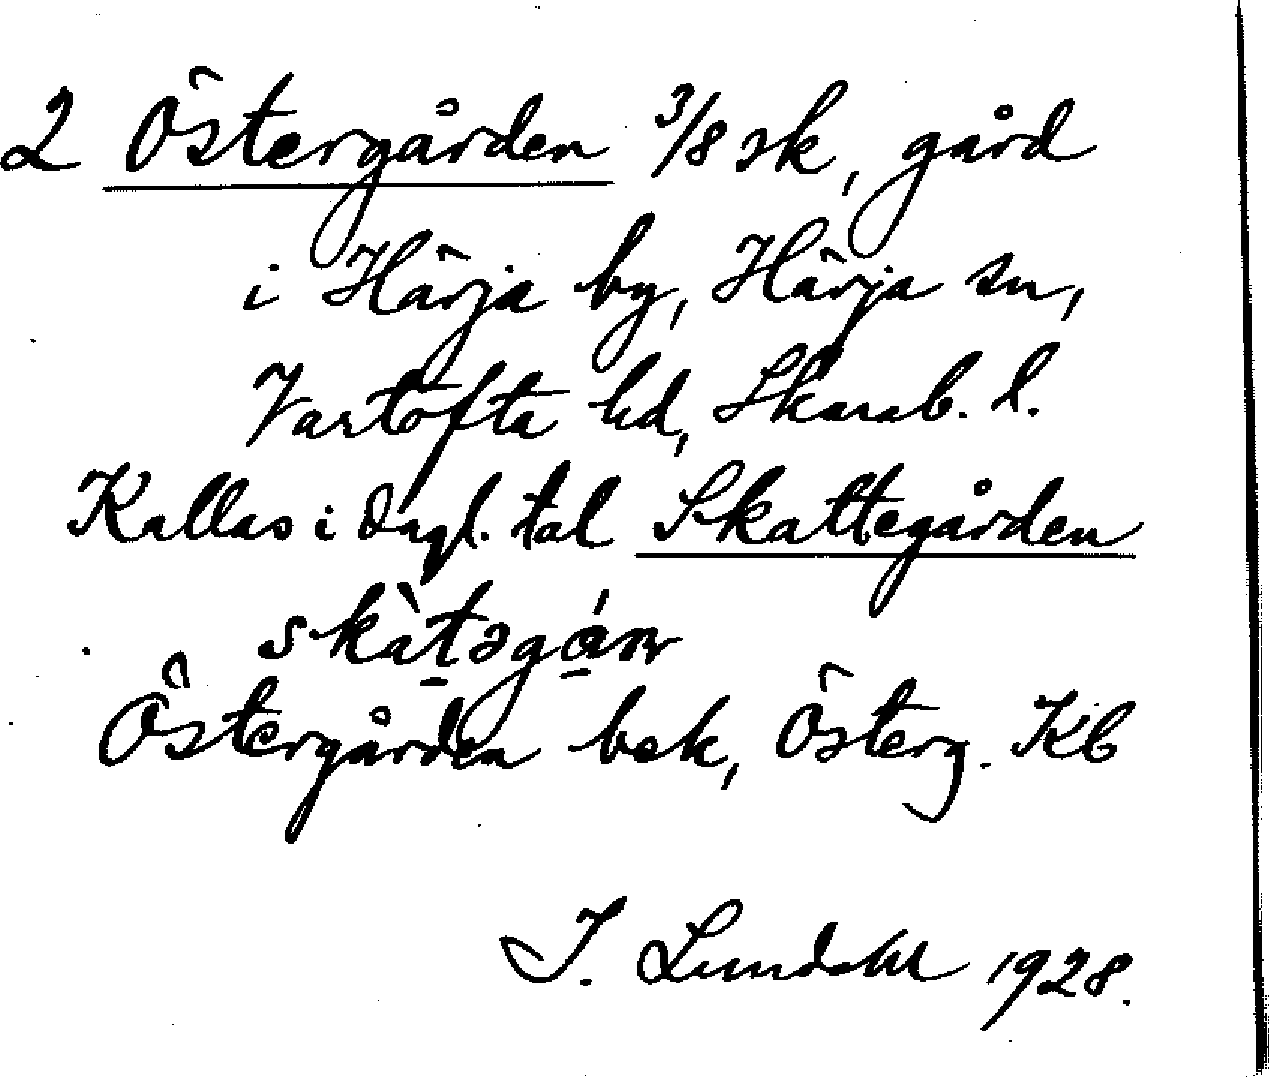 2 Östergården 3/8 sk, gård
i Härja by, Härja sn,
Vartofta hd, Skarab. l.
Kallas i dagl. tal Skattegården
skàtəgáṇ
Östergården bok, Österg. Kb
I. Lundahl 1928.